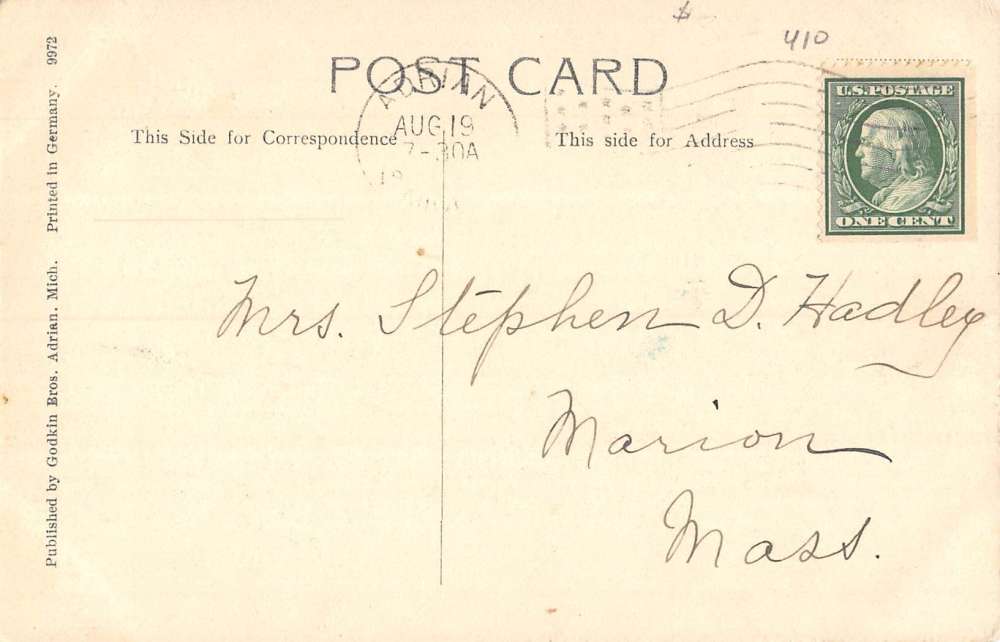 $
410
POST CARD
ADRIAN
AUG 19
7-30A
This Side for Correspondence
This side for Address
U.S. POSTAGE
ONE CENT
Mrs. Stephen D. Hadley
Marion
Mass.
Published by Godkin Bros. Adrian. Mich. Printed in Germany. 9972